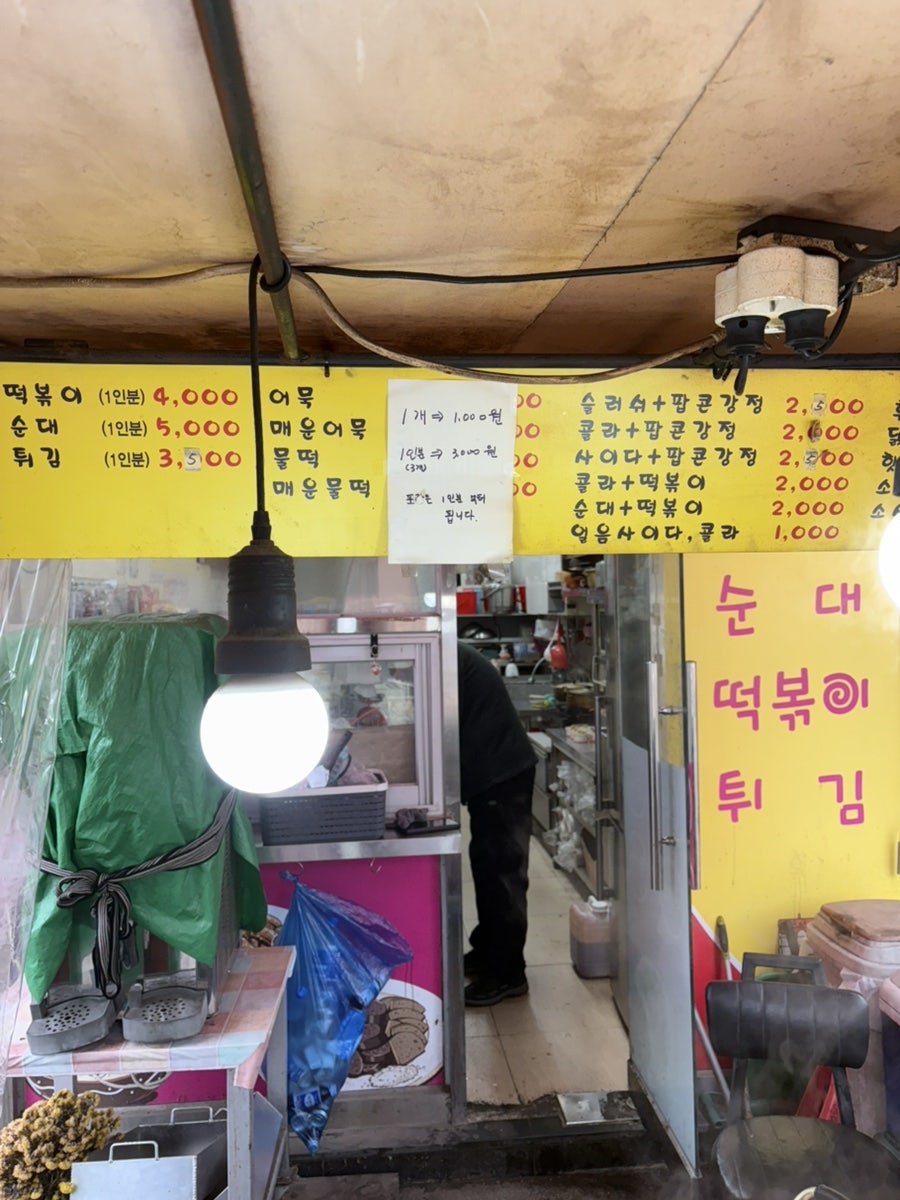 떡볶이 (1인분) 4,000
순대 (1인분) 5,000
튀김 (1인분) 3,500
어묵
매운어묵
물떡
매운물떡
1개 ⇒ 1.000원
1인분 ⇒ 3000원
(3개)
1인분 부터
됩니다.
슬러쉬+팝콘강정 2,500
콜라+팝콘강정 2,000
사이다+팝콘강정 2,500
콜라+떡볶이 2,000
순대+떡볶이 2,000
얼음사이다,콜라 1,000
순대
떡볶이
튀김